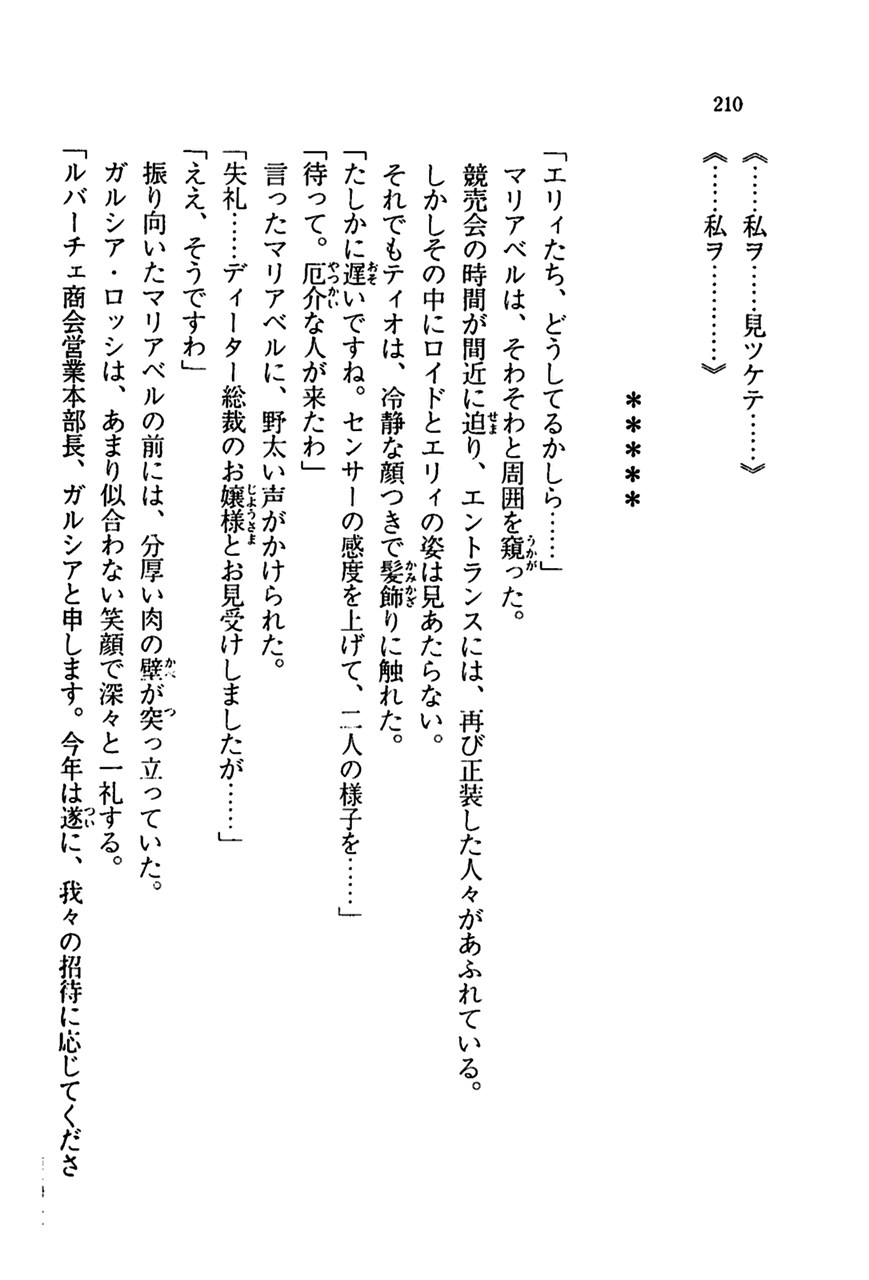 210
《……私ヲ……見ツケテ……》
《……私ヲ…………》
＊＊＊＊＊
「エリィたち、どうしてるかしら……」
マリアベルは、そわそわと周囲を窺った。
競売会の時間が間近に迫り、エントランスには、再び正装した人々があふれている。
しかしその中にロイドとエリィの姿は見あたらない。
それでもティオは、冷静な顔つきで髪飾りに触れた。
「たしかに遅いですね。センサーの感度を上げて、二人の様子を……」
「待って。厄介な人が来たわ」
言ったマリアベルに、野太い声がかけられた。
「失礼……ディーター総裁のお嬢様とお見受けしましたが……」
「ええ、そうですわ」
振り向いたマリアベルの前には、分厚い肉の壁が突っ立っていた。
ガルシア・ロッシは、あまり似合わない笑顔で深々と一礼する。
「ルバーチェ商会営業本部長、ガルシアと申します。今年は遂に、我々の招待に応じてくださ